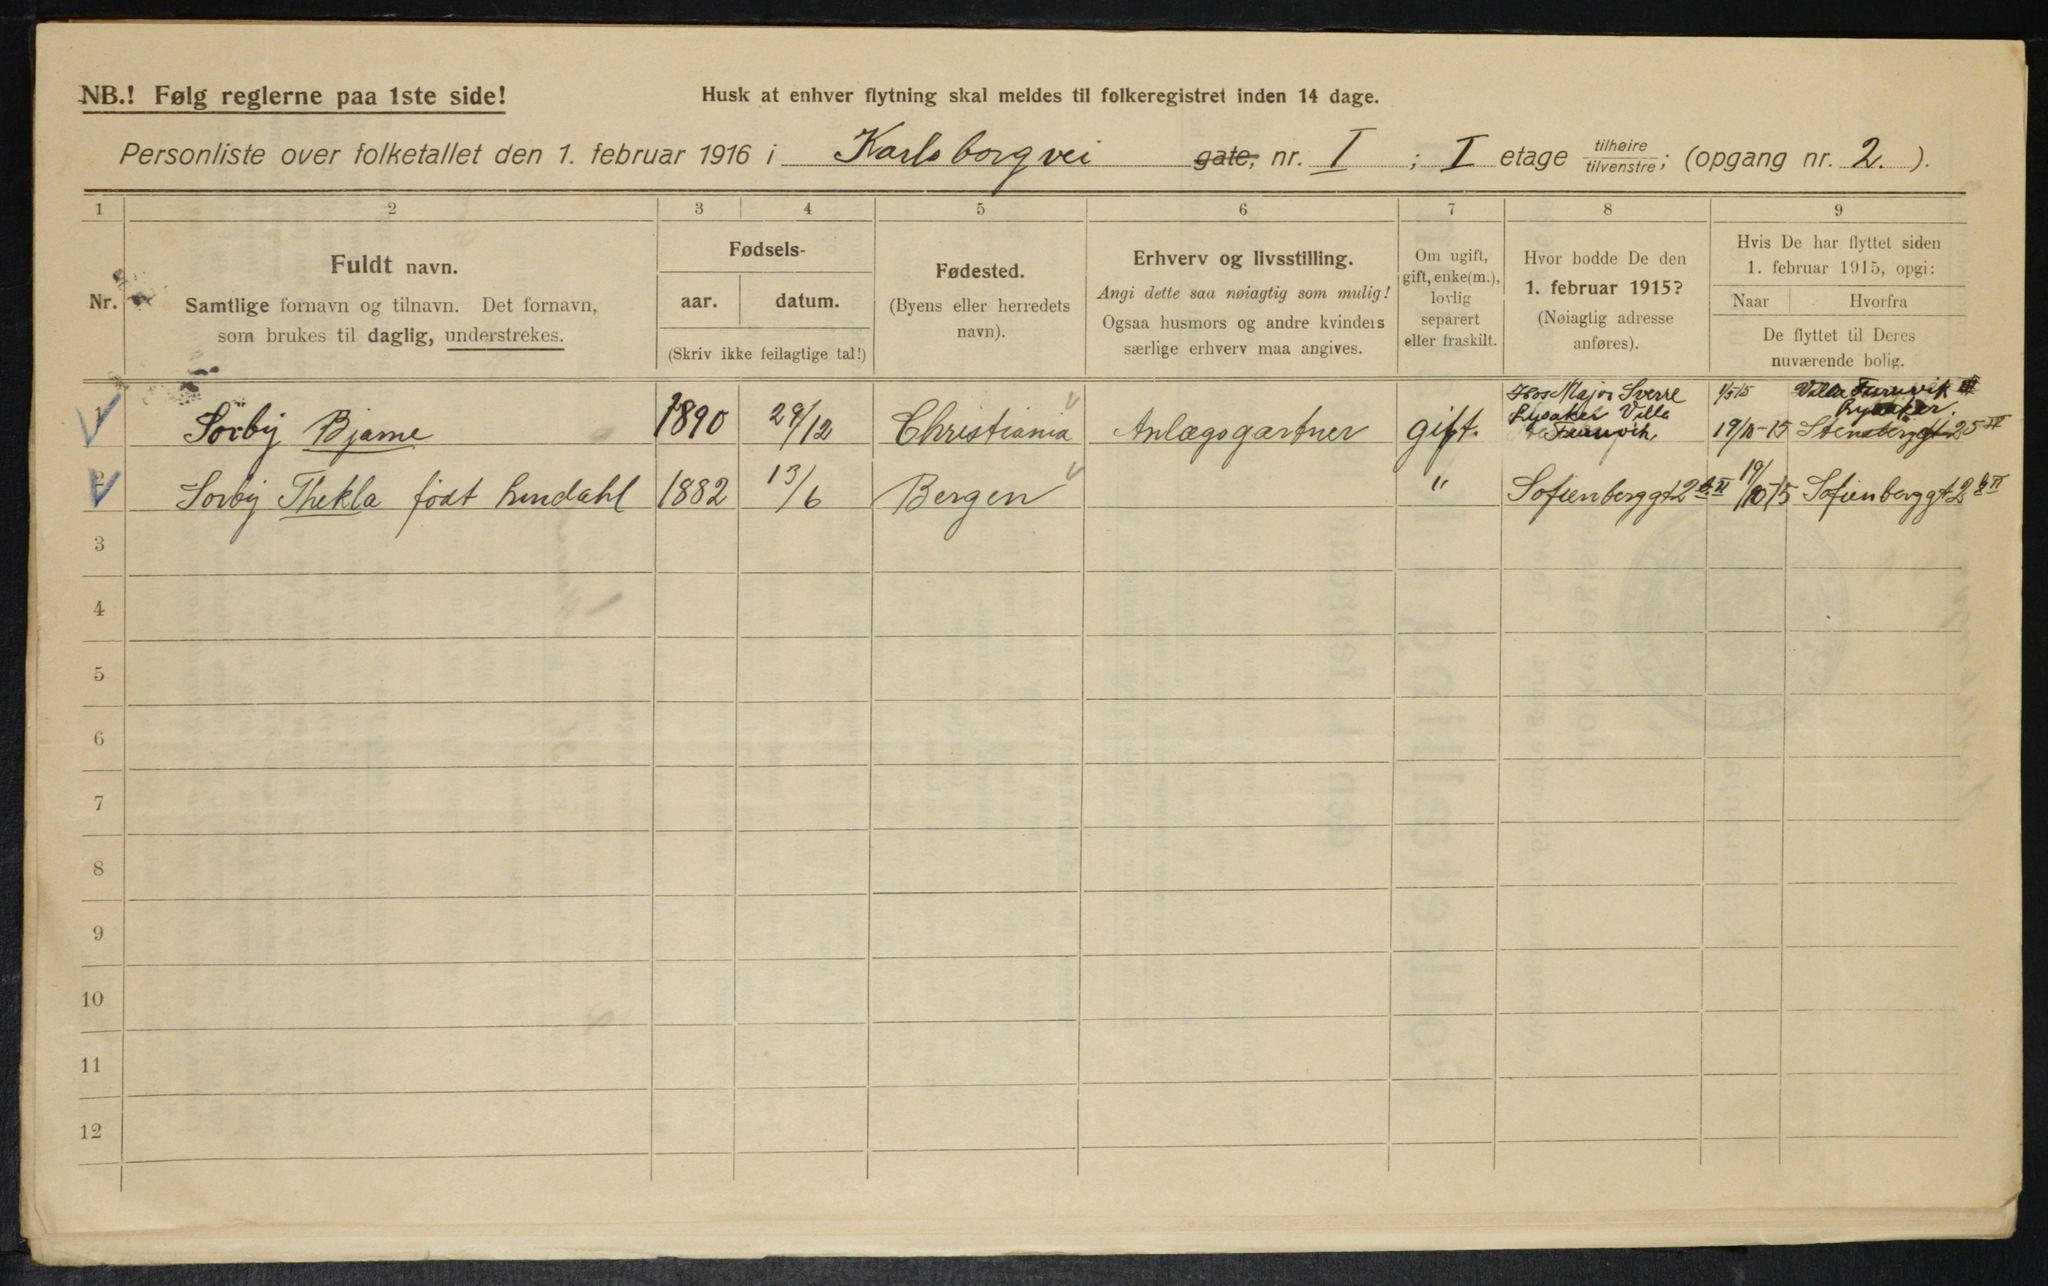 NB.! Følg reglerne paa 1ste side!
Husk at enhver flytning skal meldes til folkeregistret inden 14 dage.
Personliste over folketallet den 1. februar 1916 i Karlsborgvei gate, nr. I ; I etage tilhøire tilvenstre; (opgang nr. 2. ).
1 2 3 4 5 6 7 8 9
Nr.
Fuldt navn.
Samtlige fornavn og tilnavn. Det fornavn,
som brukes til daglig, understrekes.
Fødsels-
aar. datum.
(Skriv ikke feilagtige tal!)
Fødested.
(Byens eller herredets
navn).
Erhverv og livsstilling.
Angi dette saa nøiagtig som mulig!
Ogsaa husmors og andre kvinders
særlige erhverv maa angives.
Om ugift,
gift, enke(m.),
lovlig
separert
eller fraskilt.
Hvor bodde De den
1. februar 1915?
(Nøiagtig adresse
anføres).
Hvis De har flyttet siden
1. februar 1915, opgi:
Naar Hvorfra
De flyttet til Deres
nuværende bolig.
1 Sørby Bjarne 1890 29/12 Christiania Anlægsgartner gift. Hos Major Sverre Lysaker Villa Furuvik 1/5 15 Villa Furuvik Lysaker. 19/10-15 Stensberggt 25 IV
2 Sørby Thekla født Lindahl 1882 13/6 Bergen " Sofienberggt 2 b II 19/10-15 Sofienberggt 2 b II
3
4
5
6
7
8
9
10
11
12